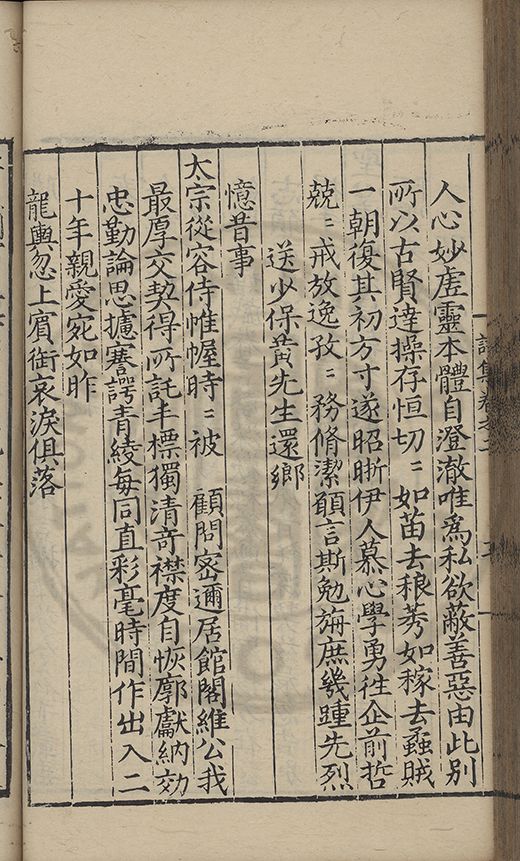 詩集卷之二
人心妙虛靈本體自澄澈唯爲私欲蔽善惡由此別
所以古賢達操存恒切〻如苗去稂莠如稼去蟊賊
一朝復其初方寸遂昭晰伊人慕心學勇往企前哲
兢〻戒放逸孜〻務脩潔願言斯勉旃庶幾踵先烈
送少保黄先生還鄉
憶昔事
太宗從容侍帷幄時〻被 顧問密邇居館閣維公我
最厚交契得所託丰標獨清竒襟度自恢廓獻納効
忠勤論思攄謇諤青綾每同直彩毫時間作出入二
十年親愛宛如昨
龍輿忽上賓銜哀淚俱落